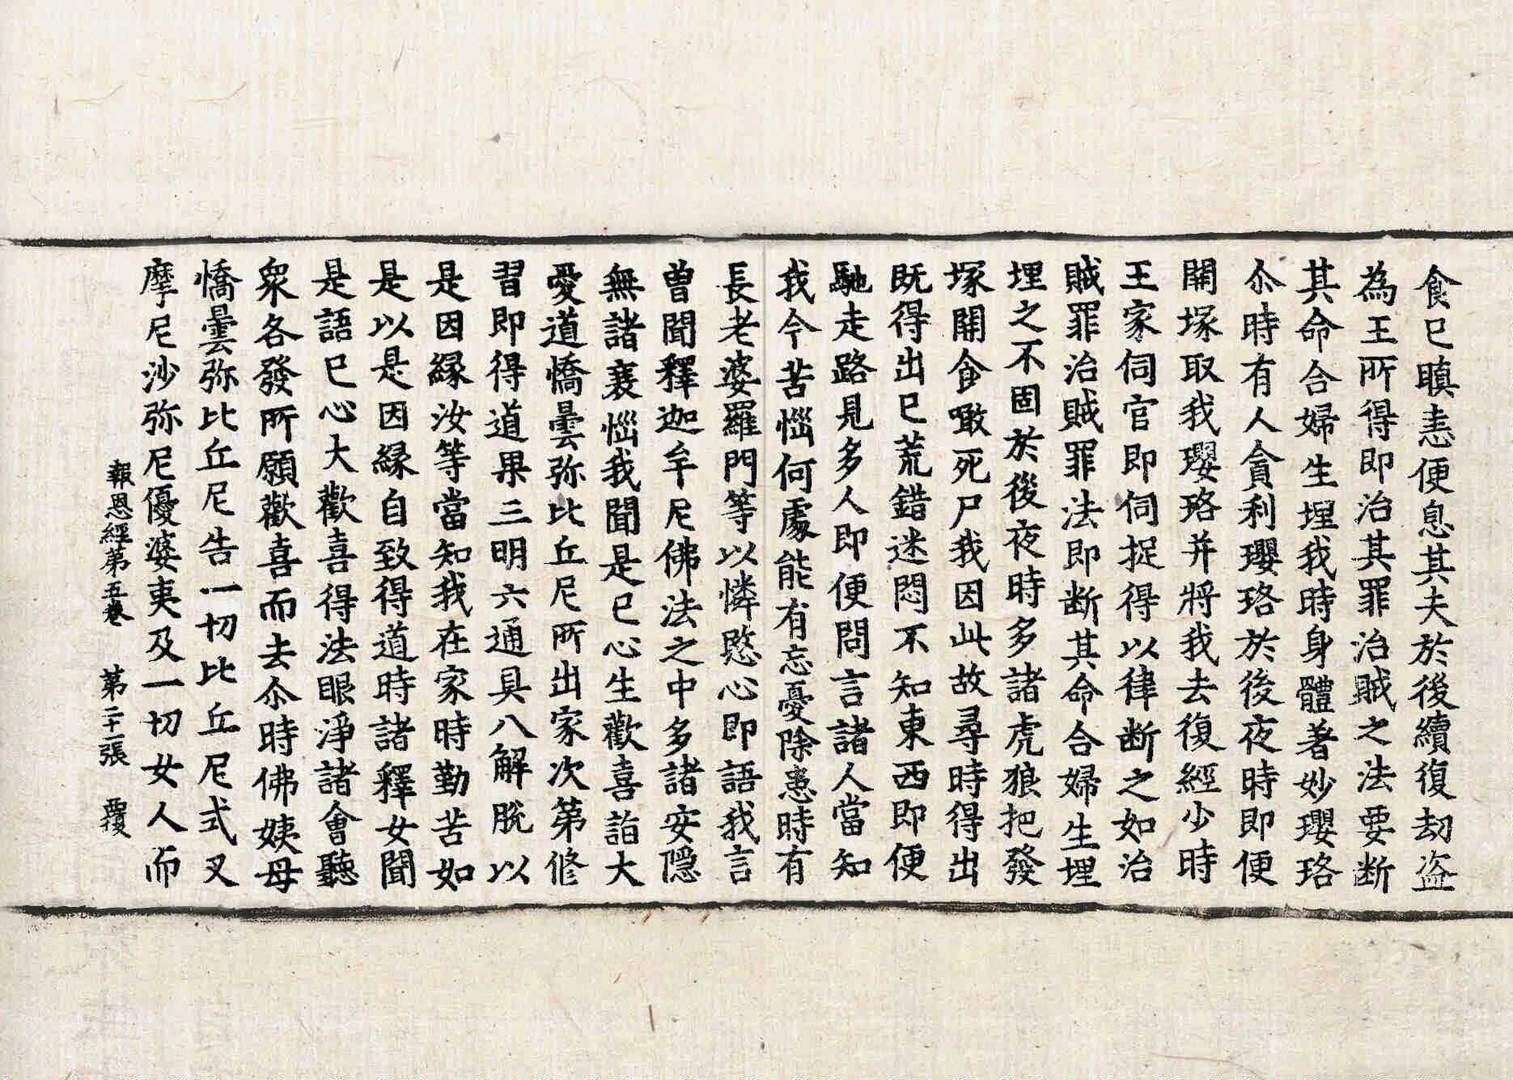 食已瞋恚便息其夫於後續復劫盗
為王所得即治其罪治賊之法要断
其命合婦生埋我時身體著妙瓔珞
尒時有人貪利瓔珞於後夜時即便
開塚取我瓔珞并將我去復經少時
王家伺官即伺捉得以律断之如治
賊罪治賊罪法即断其命合婦生埋
埋之不固於後夜時多諸虎狼把發
塚開食噉死尸我因此故尋時得出
既得出已荒錯迷悶不知東西即便
馳走路見多人即便問言諸人當知
我今苦惱何處能有忘憂除患時有
長老婆羅門等以憐愍心即語我言
曽聞釋迦牟尼佛法之中多諸安隠
無諸衰惱我聞是已心生歡喜詣大
愛道憍曇弥比丘尼所出家次第修
習即得道果三明六通具八解脫以
是因縁汝等當知我在家時勤苦如
是以是因縁自致得道時諸釋女聞
是語已心大歡喜得法眼淨諸會聽
衆各發所願歡喜而去尒時佛姨母
憍曇弥比丘尼告一切比丘尼式叉
摩尼沙弥尼優婆夷及一切女人而
報恩經第五卷 第二十一張 覆